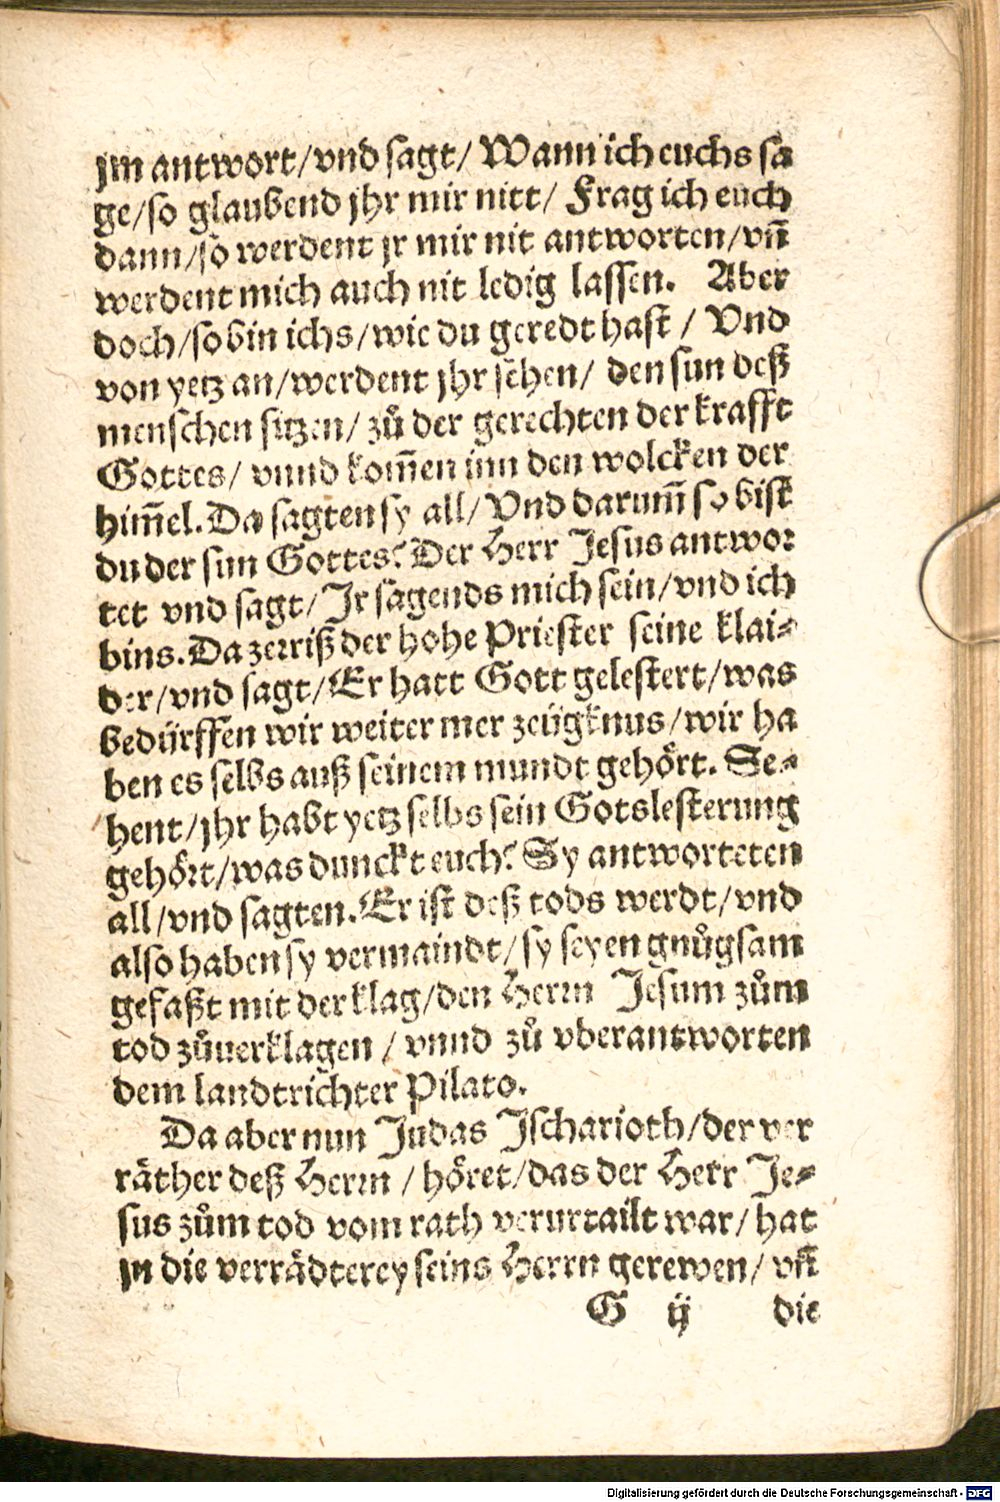 jm antwort/vnd sagt/ Wann ich euchs sa
ge/so glaubend jhr mir nitt/ Frag ich euch
dann/so werdent jr mir nit antworten/vñ
werdent mich auch nit ledig lassen. Aber
doch/so bin ichs/wie du geredt hast / Vnd
von yetz an/werdent jhr sehen/ den sun deß
menschen sitzen/ zů der gerechten der krafft
Gottes/ vnnd kom̃en inn den wolcken der
him̃el. Da sagten sy all/ Vnd darum̃ so bist
du der sun Gottes? Der Herr Jesus antwor
tet vnd sagt/ Jr sagends mich sein/vnd ich
bins. Da zerriß der hohe Priester seine klai⸗
der/vnd sagt/ Er hatt Gott gelestert/was
bedürffen wir weiter mer zeügknus/wir ha
ben es selbs auß seinem mundt gehört. Se⸗
hent/jhr habt yetz selbs sein Gotslesterung
gehört/was dunckt euch? Sy antworteten
all/vnd sagten. Er ist deß tods werdt/vnd
also haben sy vermaindt/ sy seyen gnůgsam
gefaßt mit der klag/den Herrn Jesum zům
tod zůuerklagen / vnnd zů vberantworten
dem landtrichter Pilato.
Da aber nun Judas Jscharioth/der ver
räther deß Herrn / höret/das der Herr Je⸗
sus zům tod vom rath verurtailt war/ hat
jn die verrädterey seins Herrn gerewen/ vñ
G ij die
Digitalisierung gefördert durch die Deutsche Forschungsgemeinschaft - DFG